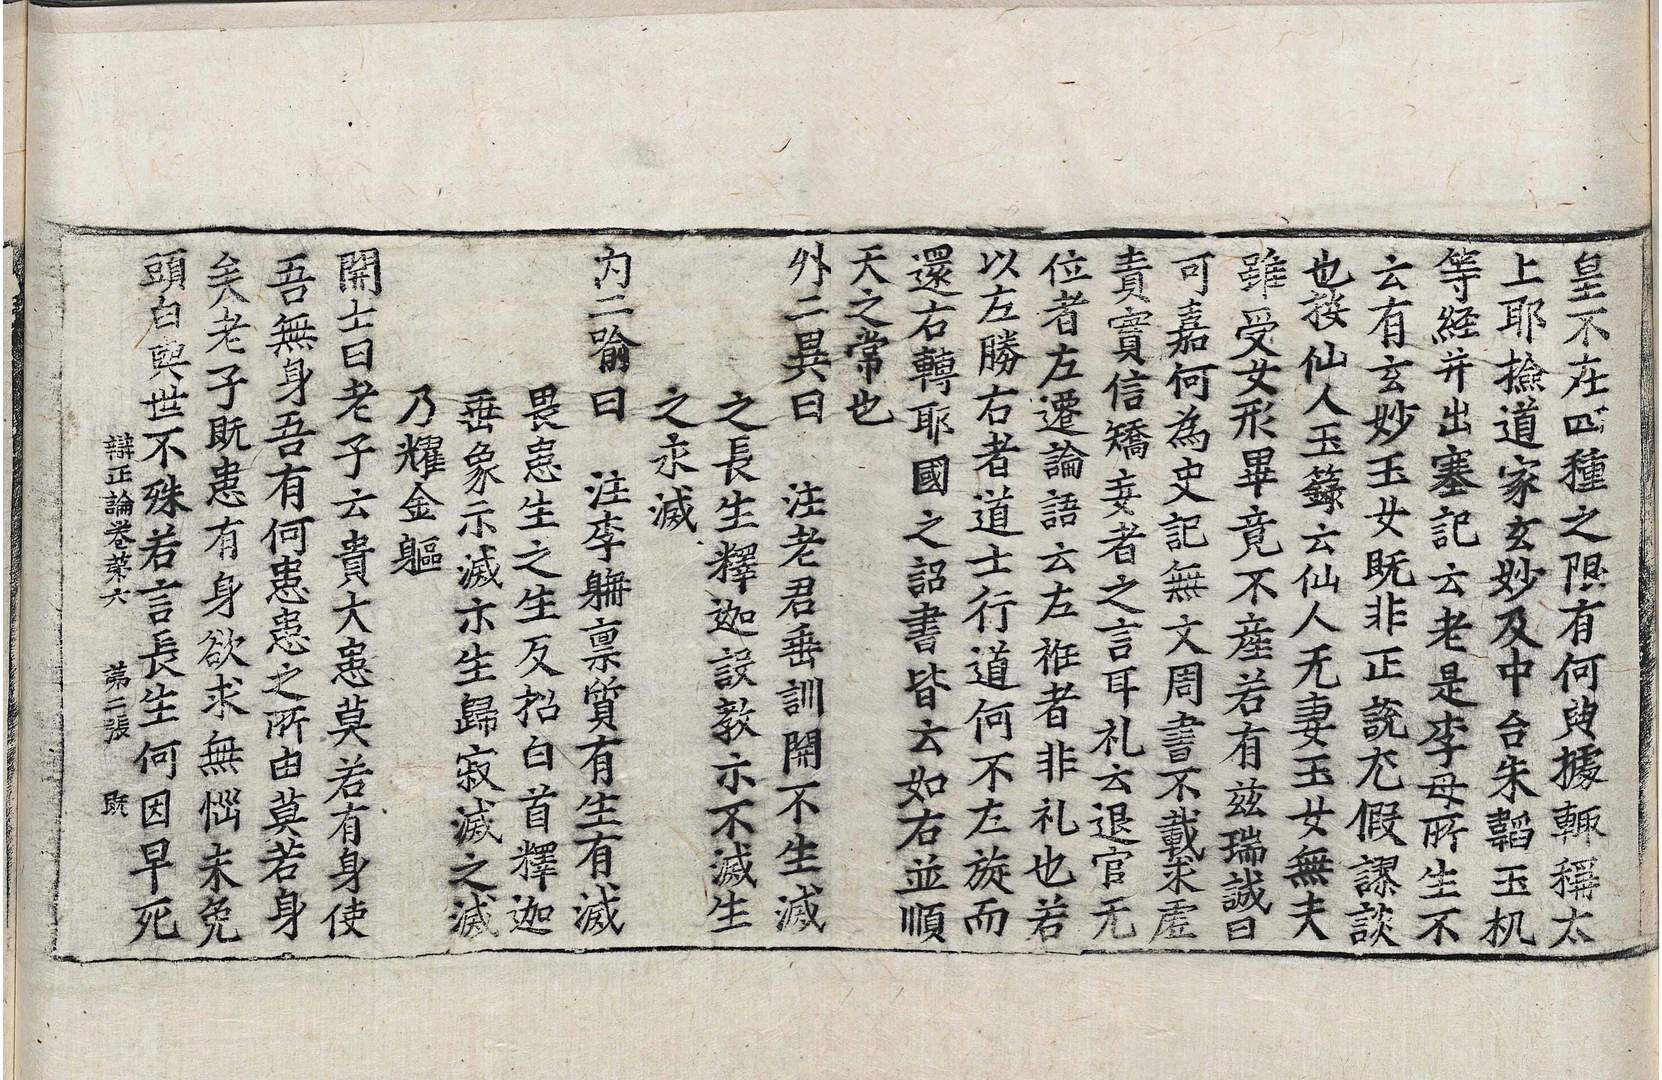 皇不在四種之限有何典據輙稱太
上耶撿道家玄妙及中台朱韜玉机
等經并出塞記云老是李母所生不
云有玄妙玉女既非正說尤假謬談
也按仙人玉籙云仙人无妻玉女無夫
雖受女形畢竟不產若有茲瑞誠曰
可嘉何為史記無文周書不載求虛
責實信矯妄者之言耳礼云退官无
位者左遷論語云左袵者非礼也若
以左勝右者道士行道何不左旋而
還右轉耶國之詔書皆云如右並順
天之常也
外二異曰 注老君垂訓開不生滅
之長生釋迦設教示不滅生
之永滅
內二喻曰 注李聃禀質有生有滅
畏患生之生反招白首釋迦
垂象示滅示生歸寂滅之滅
乃耀金軀
開士曰老子云貴大患莫若有身使
吾無身吾有何患患之所由莫若身
矣老子既患有身欲求無惱未免
頭白與世不殊若言長生何因早死
辯正論卷第六 第二張 旣